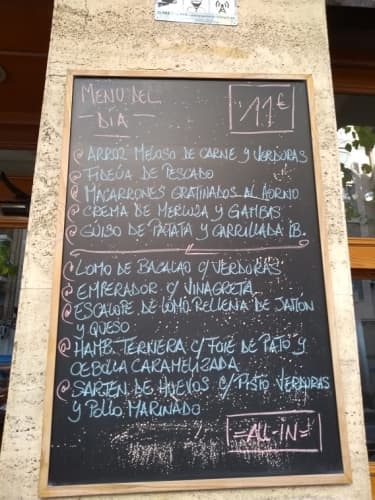 MENU DEL
- DÍA -
11€
ARROZ MELOSO DE CARNE Y VERDURAS
FIDEÚA DE PESCADO
MACARRONES GRATINADOS AL HORNO
CREMA DE MERLUZA Y GAMBAS
GUISO DE PATATA Y CARRILLADA IB.
LOMO DE BACALAO C/ VERDURAS
EMPERADOR C/ VINAGRETA
ESCALOPE DE LOMO RELLENA DE JAMON
Y QUESO
HAMB. TERNERA C/ FOIE DE PATO Y
CEBOLLA CARAMELIZADA
SARTEN DE HUEVOS C/ PISTO VERDURAS
Y POLLO MARINADO
=ALL-IN=